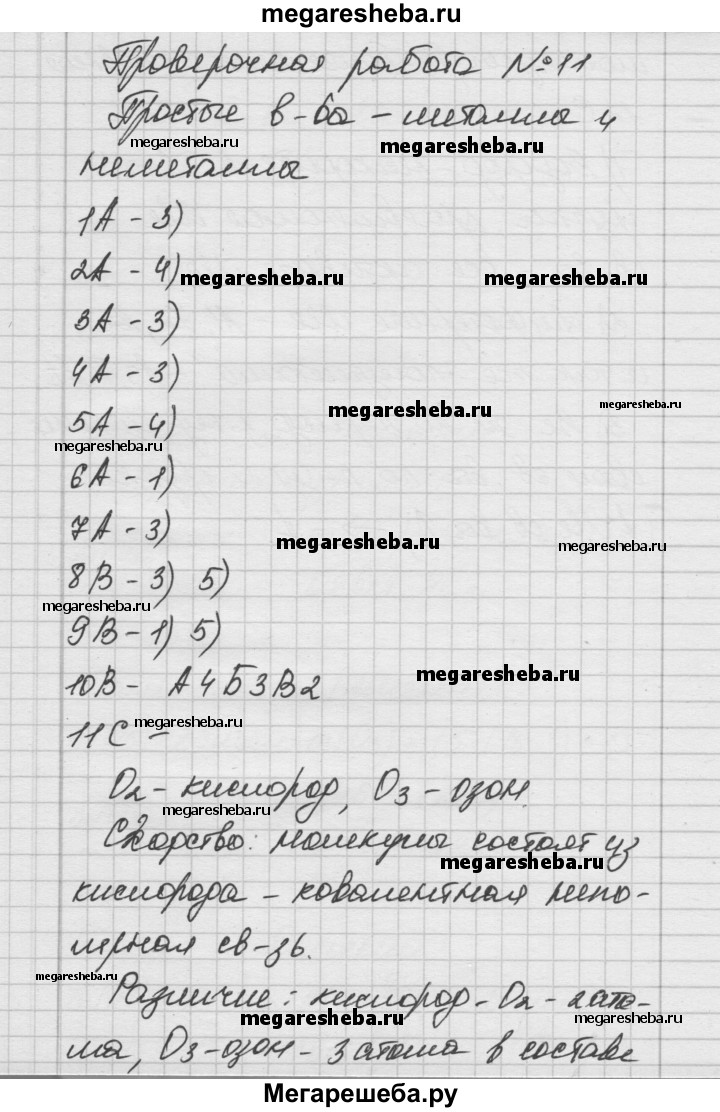 megaresheba.ru
Проверочная работа №11
Простые в-ва - металлы и
megaresheba.ru megaresheba.ru
неметаллы
1А - 3)
2А - 4) megaresheba.ru megaresheba.ru
3А - 3)
4А - 3)
megaresheba.ru megaresheba.ru
5А - 4)
megaresheba.ru
6А - 1)
7А - 3)
megaresheba.ru megaresheba.ru
8В - 3) 5)
megaresheba.ru
9В - 1) 5)
megaresheba.ru
10В - А4Б3В2
11С - megaresheba.ru
О2 - кислород, О3 - озон.
megaresheba.ru
Сходство: молекулы состоят из
megaresheba.ru
кислорода - ковалентная непо-
лярная св-зь.
megaresheba.ru
Различие: кислород - О2 - 2 ато-
megaresheba.ru megaresheba.ru
ма, О3 - озон - 3 атома в составе
Мегарешеба.ру